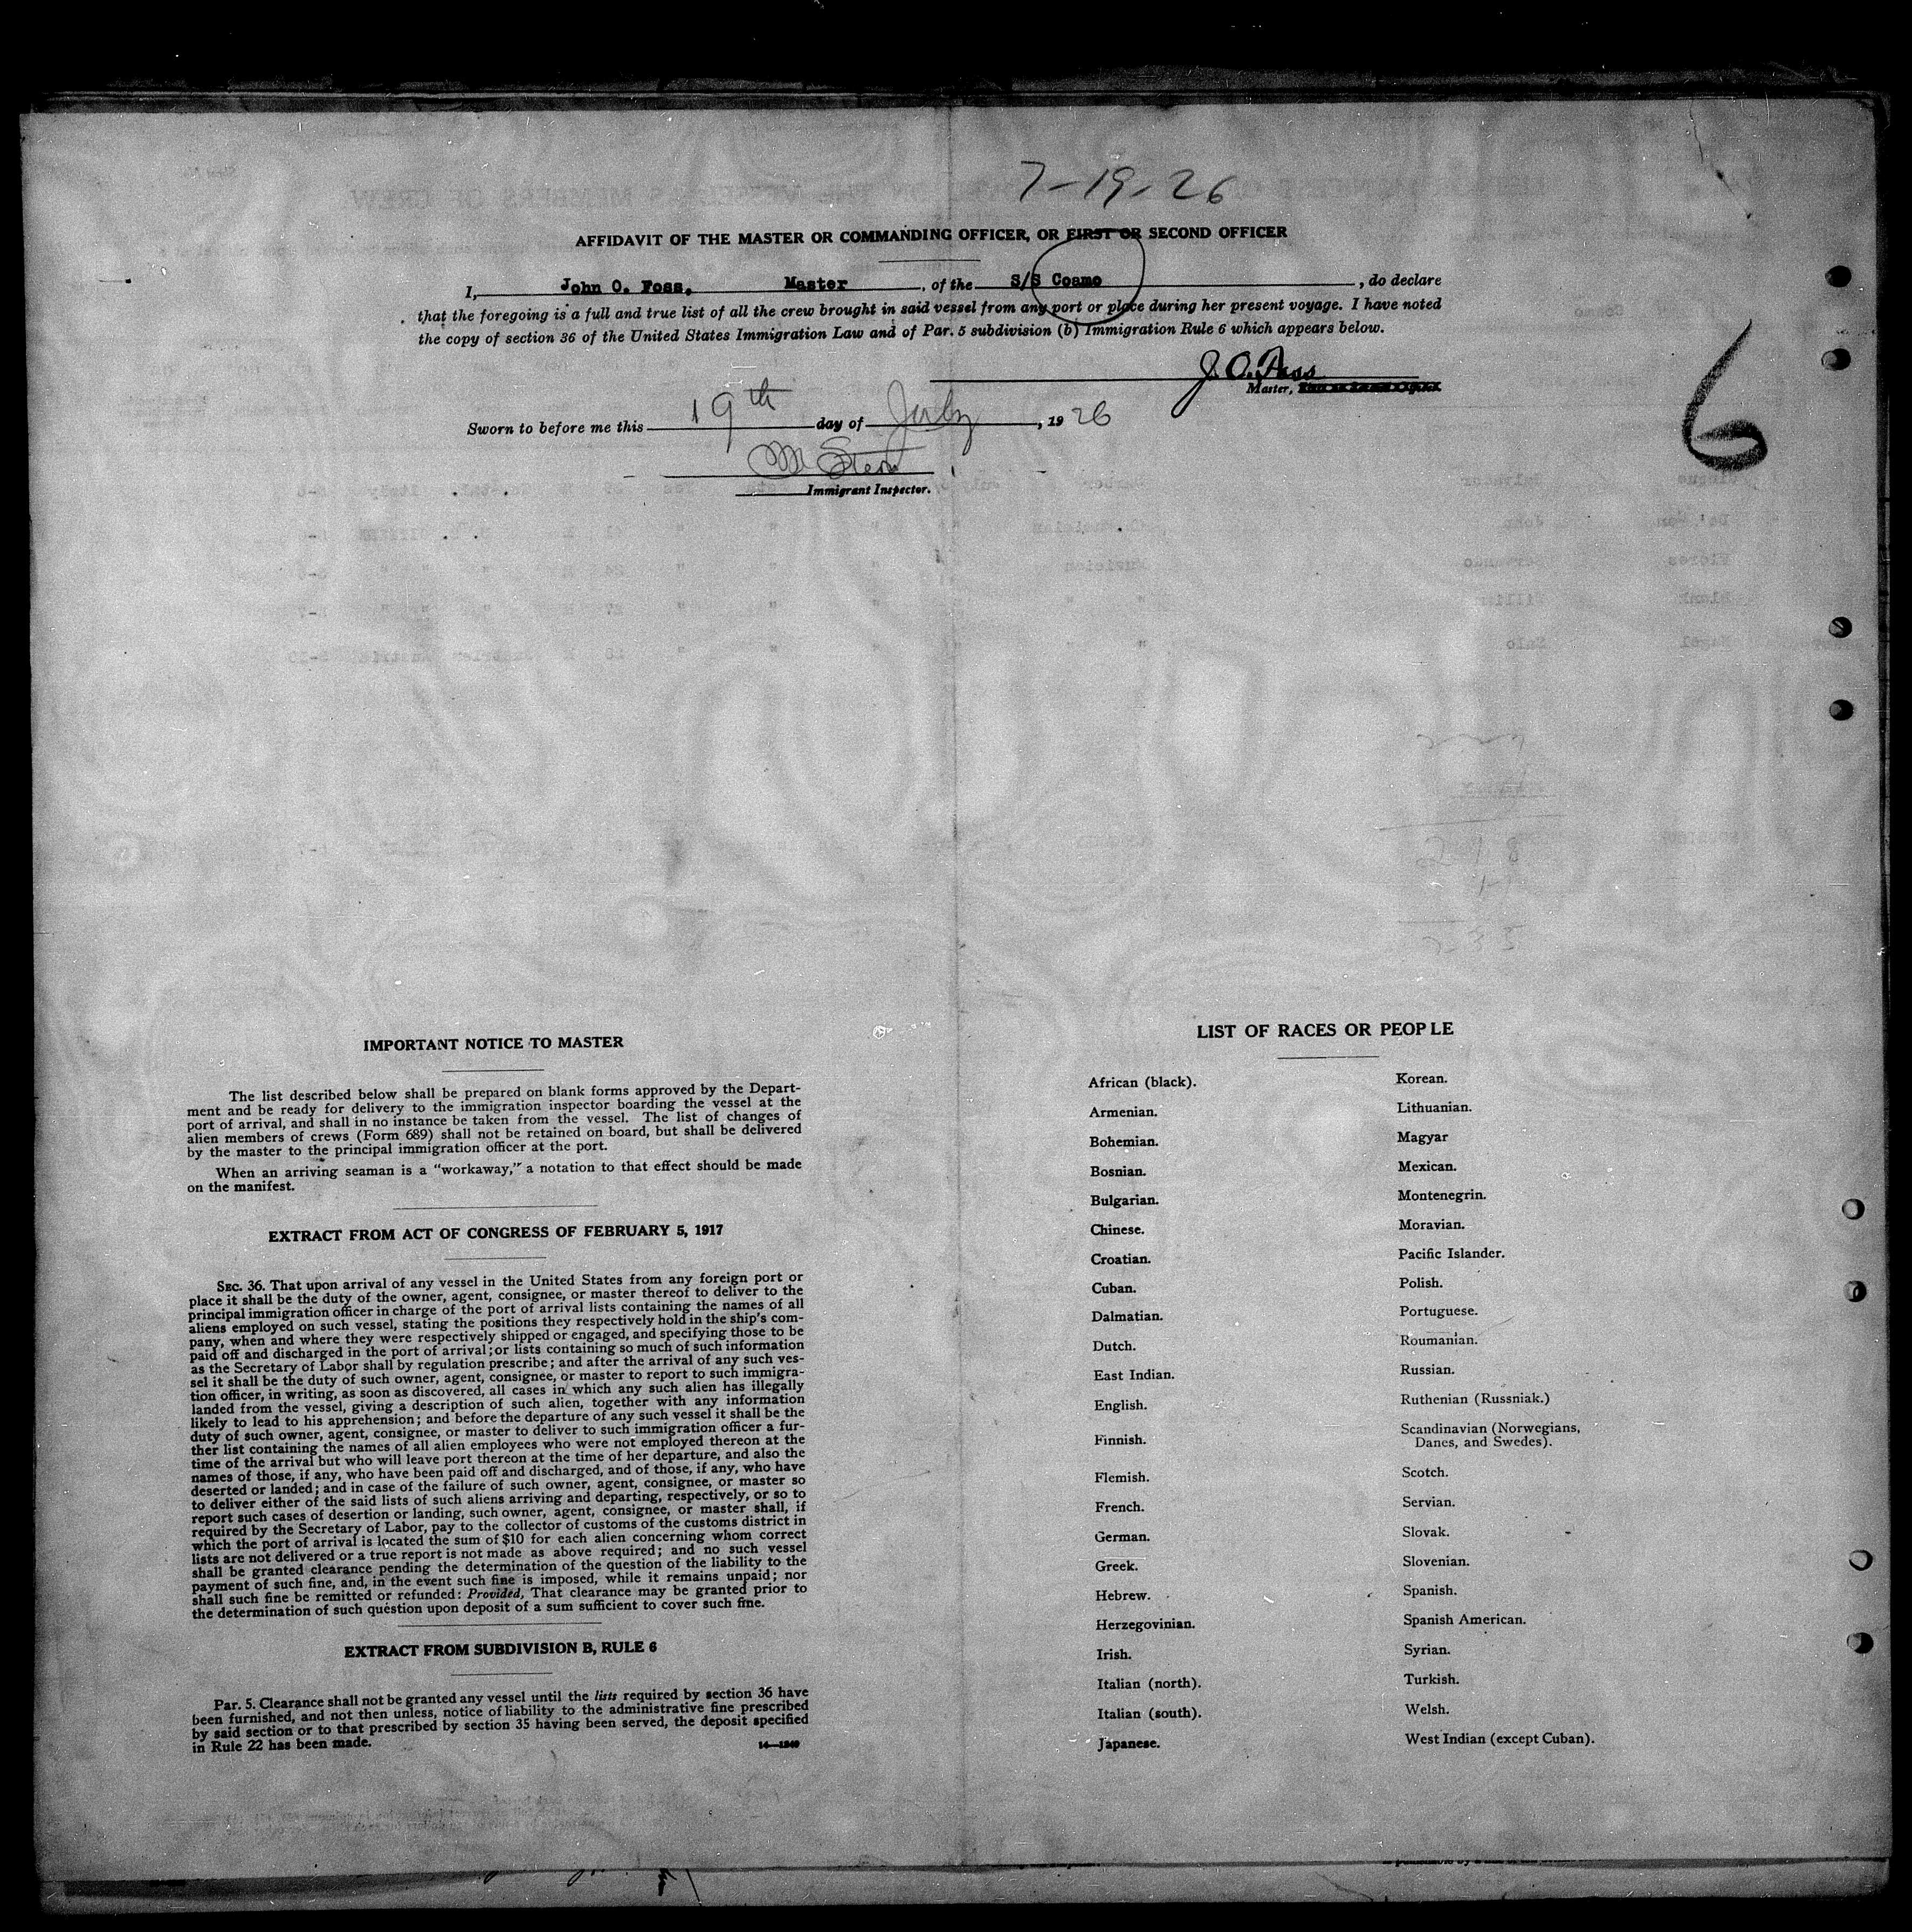 7-19-26
AFFIDAVIT OF THE MASTER OR COMMANDING OFFICER, OR FIRST OR SECOND OFFICER
I, John O. Foss, Master, of the S/S Coamo, do declare
that the foregoing is a full and true list of all the crew brought in said vessel from any port or place during her present voyage. I have noted
the copy of section 36 of the United States Immigration Law and of Par. 5 subdivision (b) Immigration Rule 6 which appears below.
J. O. Foss
Master,
6
Sworn to before me this 19th day of July, 1926
M Stern
Immigrant Inspector.
IMPORTANT NOTICE TO MASTER
The list described below shall be prepared on blank forms approved by the Depart-
ment and be ready for delivery to the immigration inspector boarding the vessel at the
port of arrival, and shall in no instance be taken from the vessel. The list of changes of
alien members of crews (Form 689) shall not be retained on board, but shall be delivered
by the master to the principal immigration officer at the port.
When an arriving seaman is a "workaway," a notation to that effect should be made
on the manifest.
EXTRACT FROM ACT OF CONGRESS OF FEBRUARY 5, 1917
SEC. 36. That upon arrival of any vessel in the United States from any foreign port or
place it shall be the duty of the owner, agent, consignee, or master thereof to deliver to the
principal immigration officer in charge of the port of arrival lists containing the names of all
aliens employed on such vessel, stating the positions they respectively hold in the ship's com-
pany, when and where they were respectively shipped or engaged, and specifying those to be
paid off and discharged in the port of arrival; or lists containing so much of such information
as the Secretary of Labor shall by regulation prescribe; and after the arrival of any such ves-
sel it shall be the duty of such owner, agent, consignee, or master to report to such immigra-
tion officer, in writing, as soon as discovered, all cases in which any such alien has illegally
landed from the vessel, giving a description of such alien, together with any information
likely to lead to his apprehension; and before the departure of any such vessel it shall be the
duty of such owner, agent, consignee, or master to deliver to such immigration officer a fur-
ther list containing the names of all alien employees who were not employed thereon at the
time of the arrival but who will leave port thereon at the time of her departure, and also the
names of those, if any, who have been paid off and discharged, and of those, if any, who have
deserted or landed; and in case of the failure of such owner, agent, consignee, or master so
to deliver either of the said lists of such aliens arriving and departing, respectively, or so to
report such cases of desertion or landing, such owner, agent, consignee, or master shall, if
required by the Secretary of Labor, pay to the collector of customs of the customs district in
which the port of arrival is located the sum of $10 for each alien concerning whom correct
lists are not delivered or a true report is not made as above required; and no such vessel
shall be granted clearance pending the determination of the question of the liability to the
payment of such fine, and, in the event such fine is imposed, while it remains unpaid; nor
shall such fine be remitted or refunded: Provided, That clearance may be granted prior to
the determination of such question upon deposit of a sum sufficient to cover such fine.
EXTRACT FROM SUBDIVISION B, RULE 6
Par. 5. Clearance shall not be granted any vessel until the lists required by section 36 have
been furnished, and not then unless, notice of liability to the administrative fine prescribed
by said section or to that prescribed by section 35 having been served, the deposit specified
in Rule 22 has been made.
14—1240
LIST OF RACES OR PEOPLE
African (black).
Armenian.
Bohemian.
Bosnian.
Bulgarian.
Chinese.
Croatian.
Cuban.
Dalmatian.
Dutch.
East Indian.
English.
Finnish.
Flemish.
French.
German.
Greek.
Hebrew.
Herzegovinian.
Irish.
Italian (north).
Italian (south).
Japanese.
Korean.
Lithuanian.
Magyar
Mexican.
Montenegrin.
Moravian.
Pacific Islander.
Polish.
Portuguese.
Roumanian.
Russian.
Ruthenian (Russniak.)
Scandinavian (Norwegians,
Danes, and Swedes).
Scotch.
Servian.
Slovak.
Slovenian.
Spanish.
Spanish American.
Syrian.
Turkish.
Welsh.
West Indian (except Cuban).